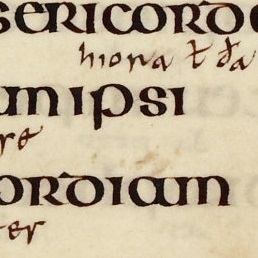 sericorde
hiona ł đa
m ipsi
re
ordiam
er